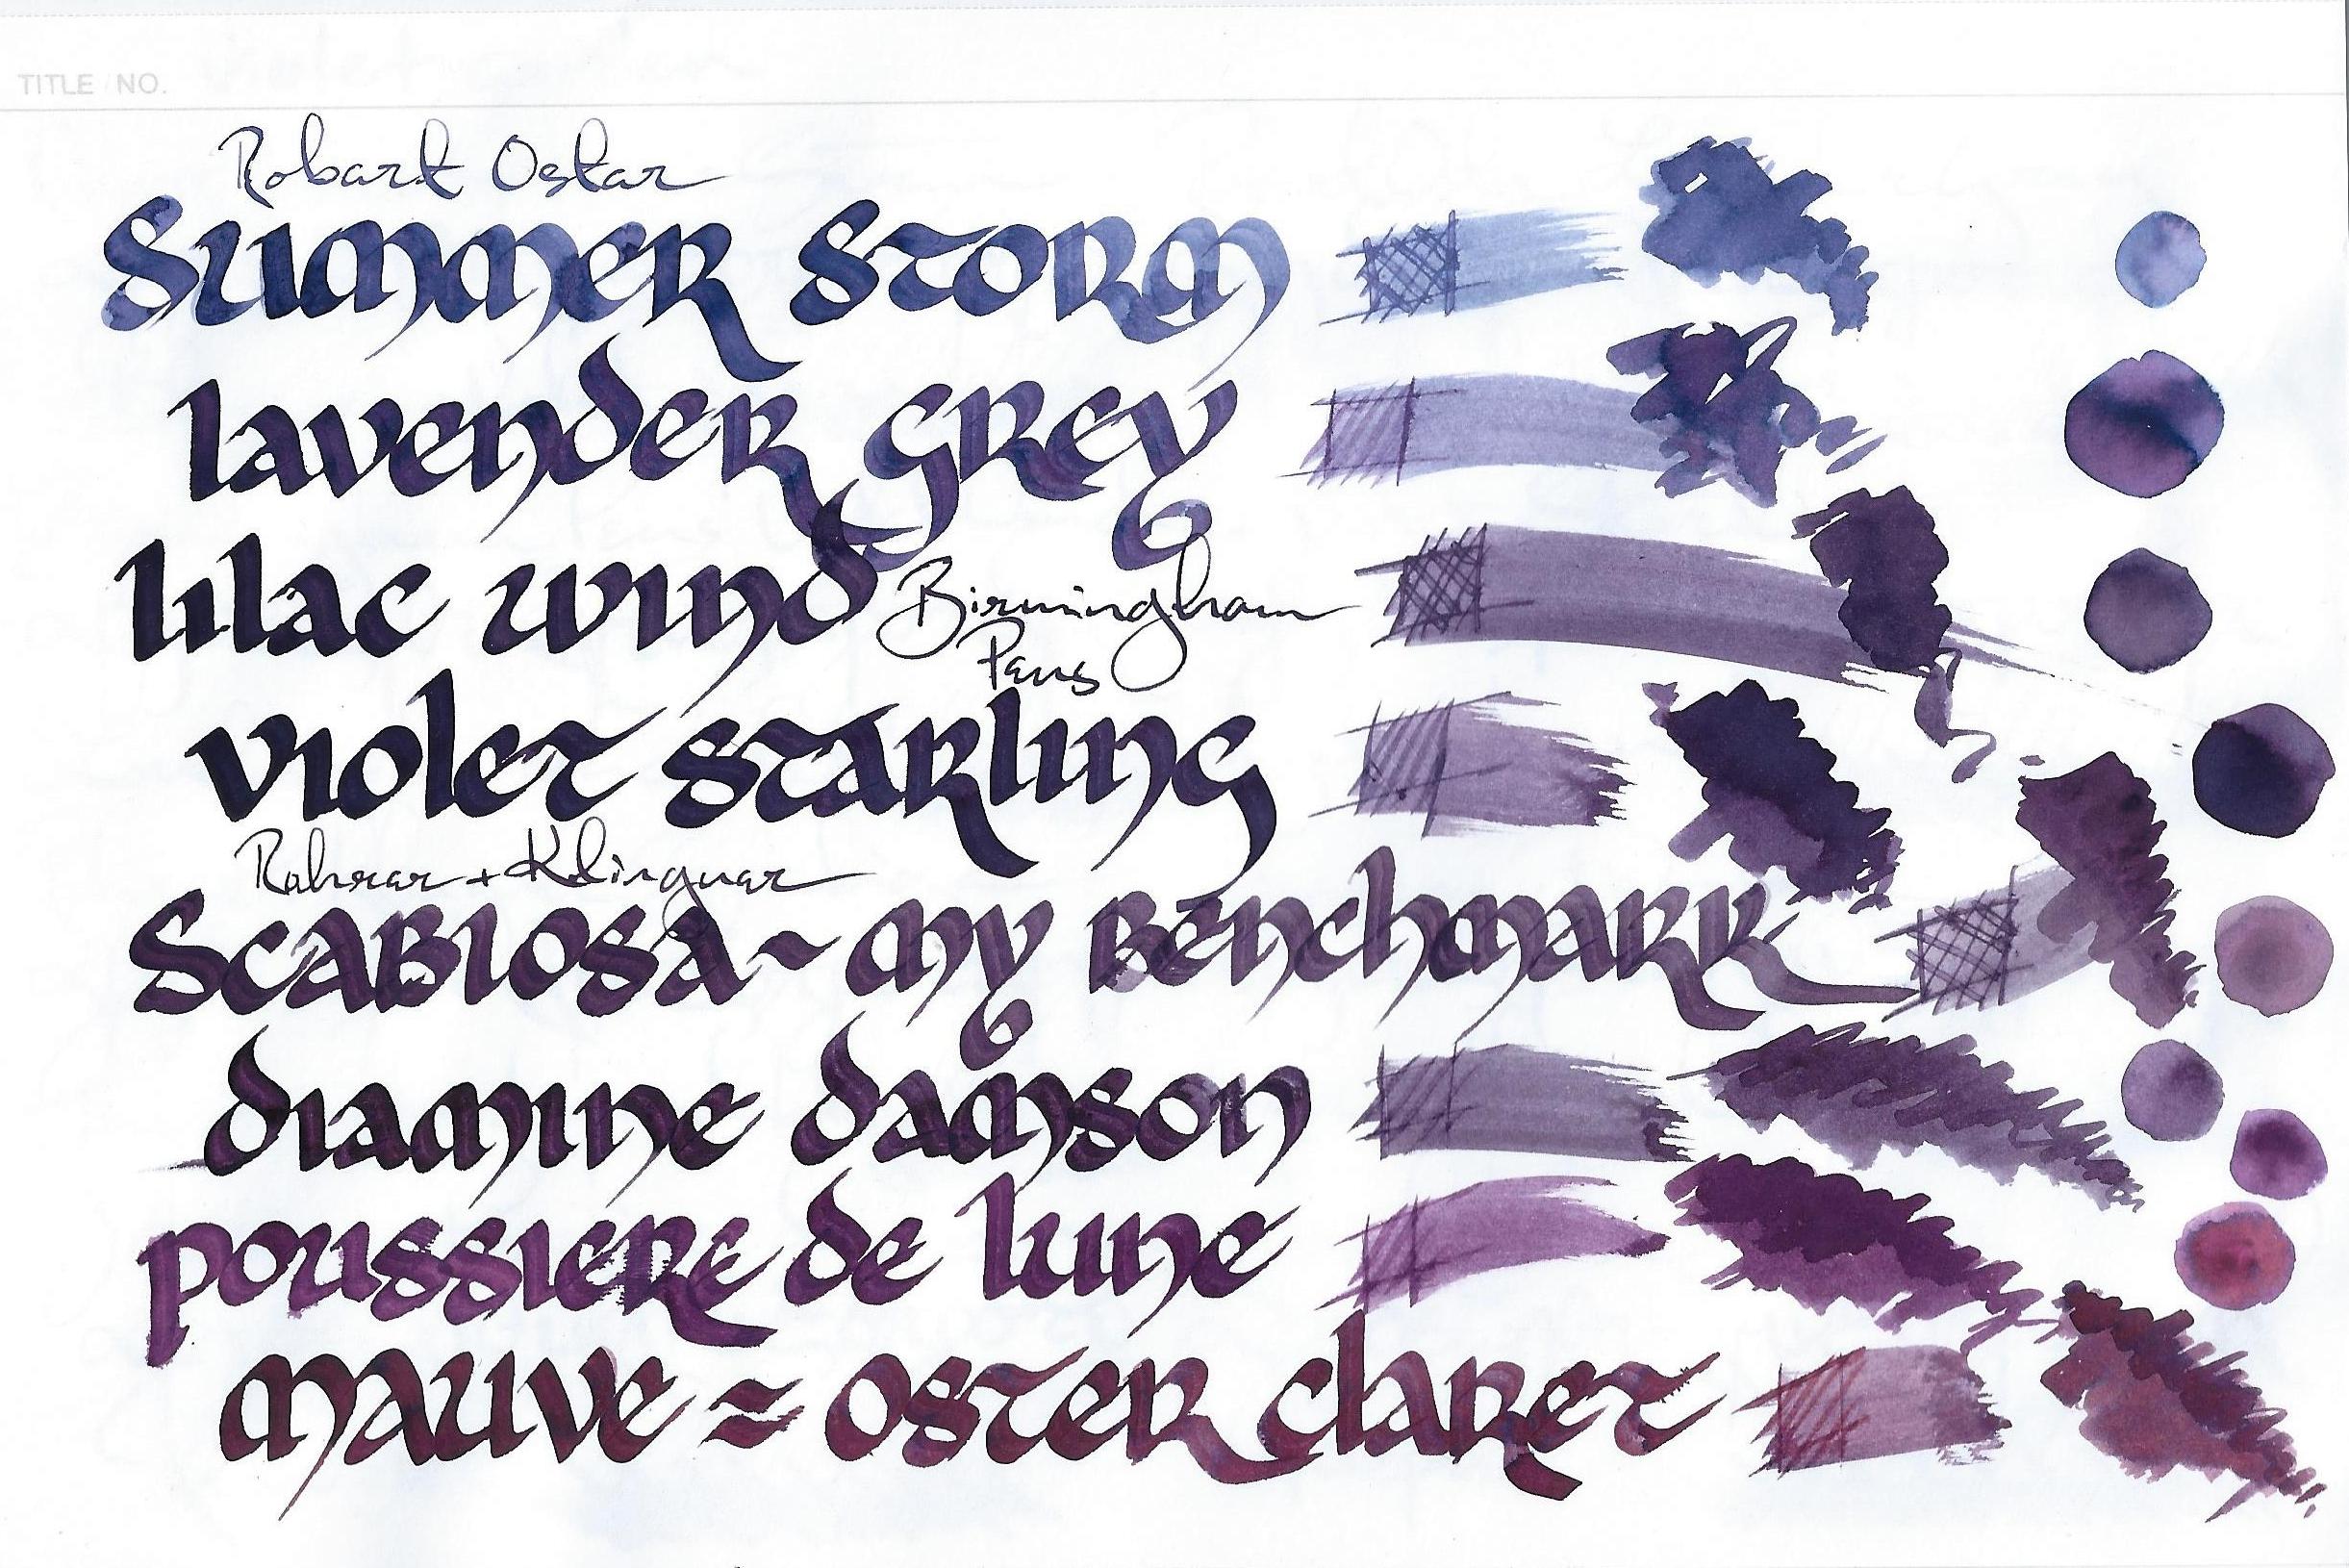 TITLE / NO.
Robert Oster
Summer Storm
lavender Grey
lilac wind
Birmingham
Pens
violet starling
Rohrer + Klingner
Scabiosa ~ my Benchmark
diamine damson
poussiere de lune
mauve ≈ oster claret